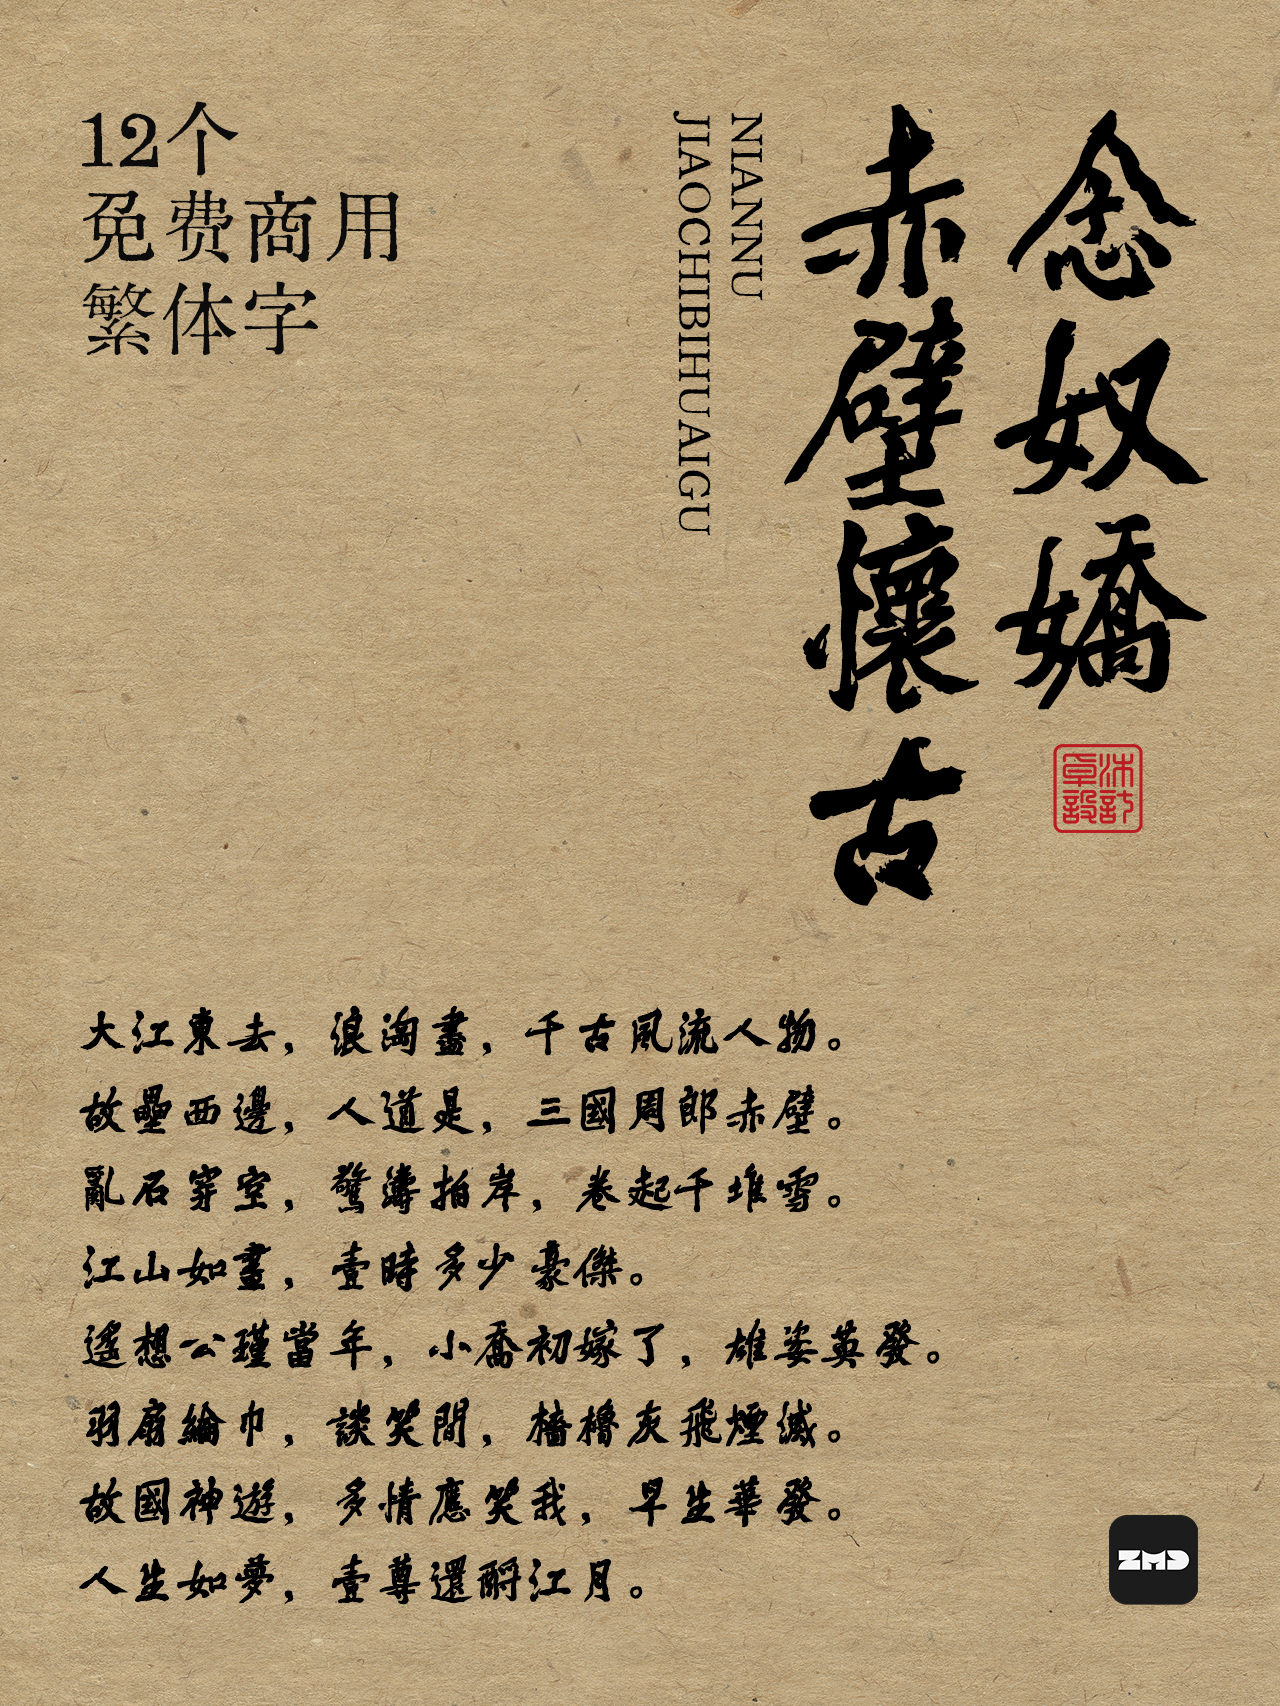 12个
免费商用
繁体字
念奴嬌
赤壁懷古
NIANNU
JIAOCHIBIHUAIGU
沐卓設計
大江東去，浪淘盡，千古風流人物。
故壘西邊，人道是，三國周郎赤壁。
亂石穿空，驚濤拍岸，卷起千堆雪。
江山如畫，壹時多少豪傑。
遙想公瑾當年，小喬初嫁了，雄姿英發。
羽扇綸巾，談笑間，檣櫓灰飛煙滅。
故國神遊，多情應笑我，早生華發。
人生如夢，壹尊還酹江月。
ZMD